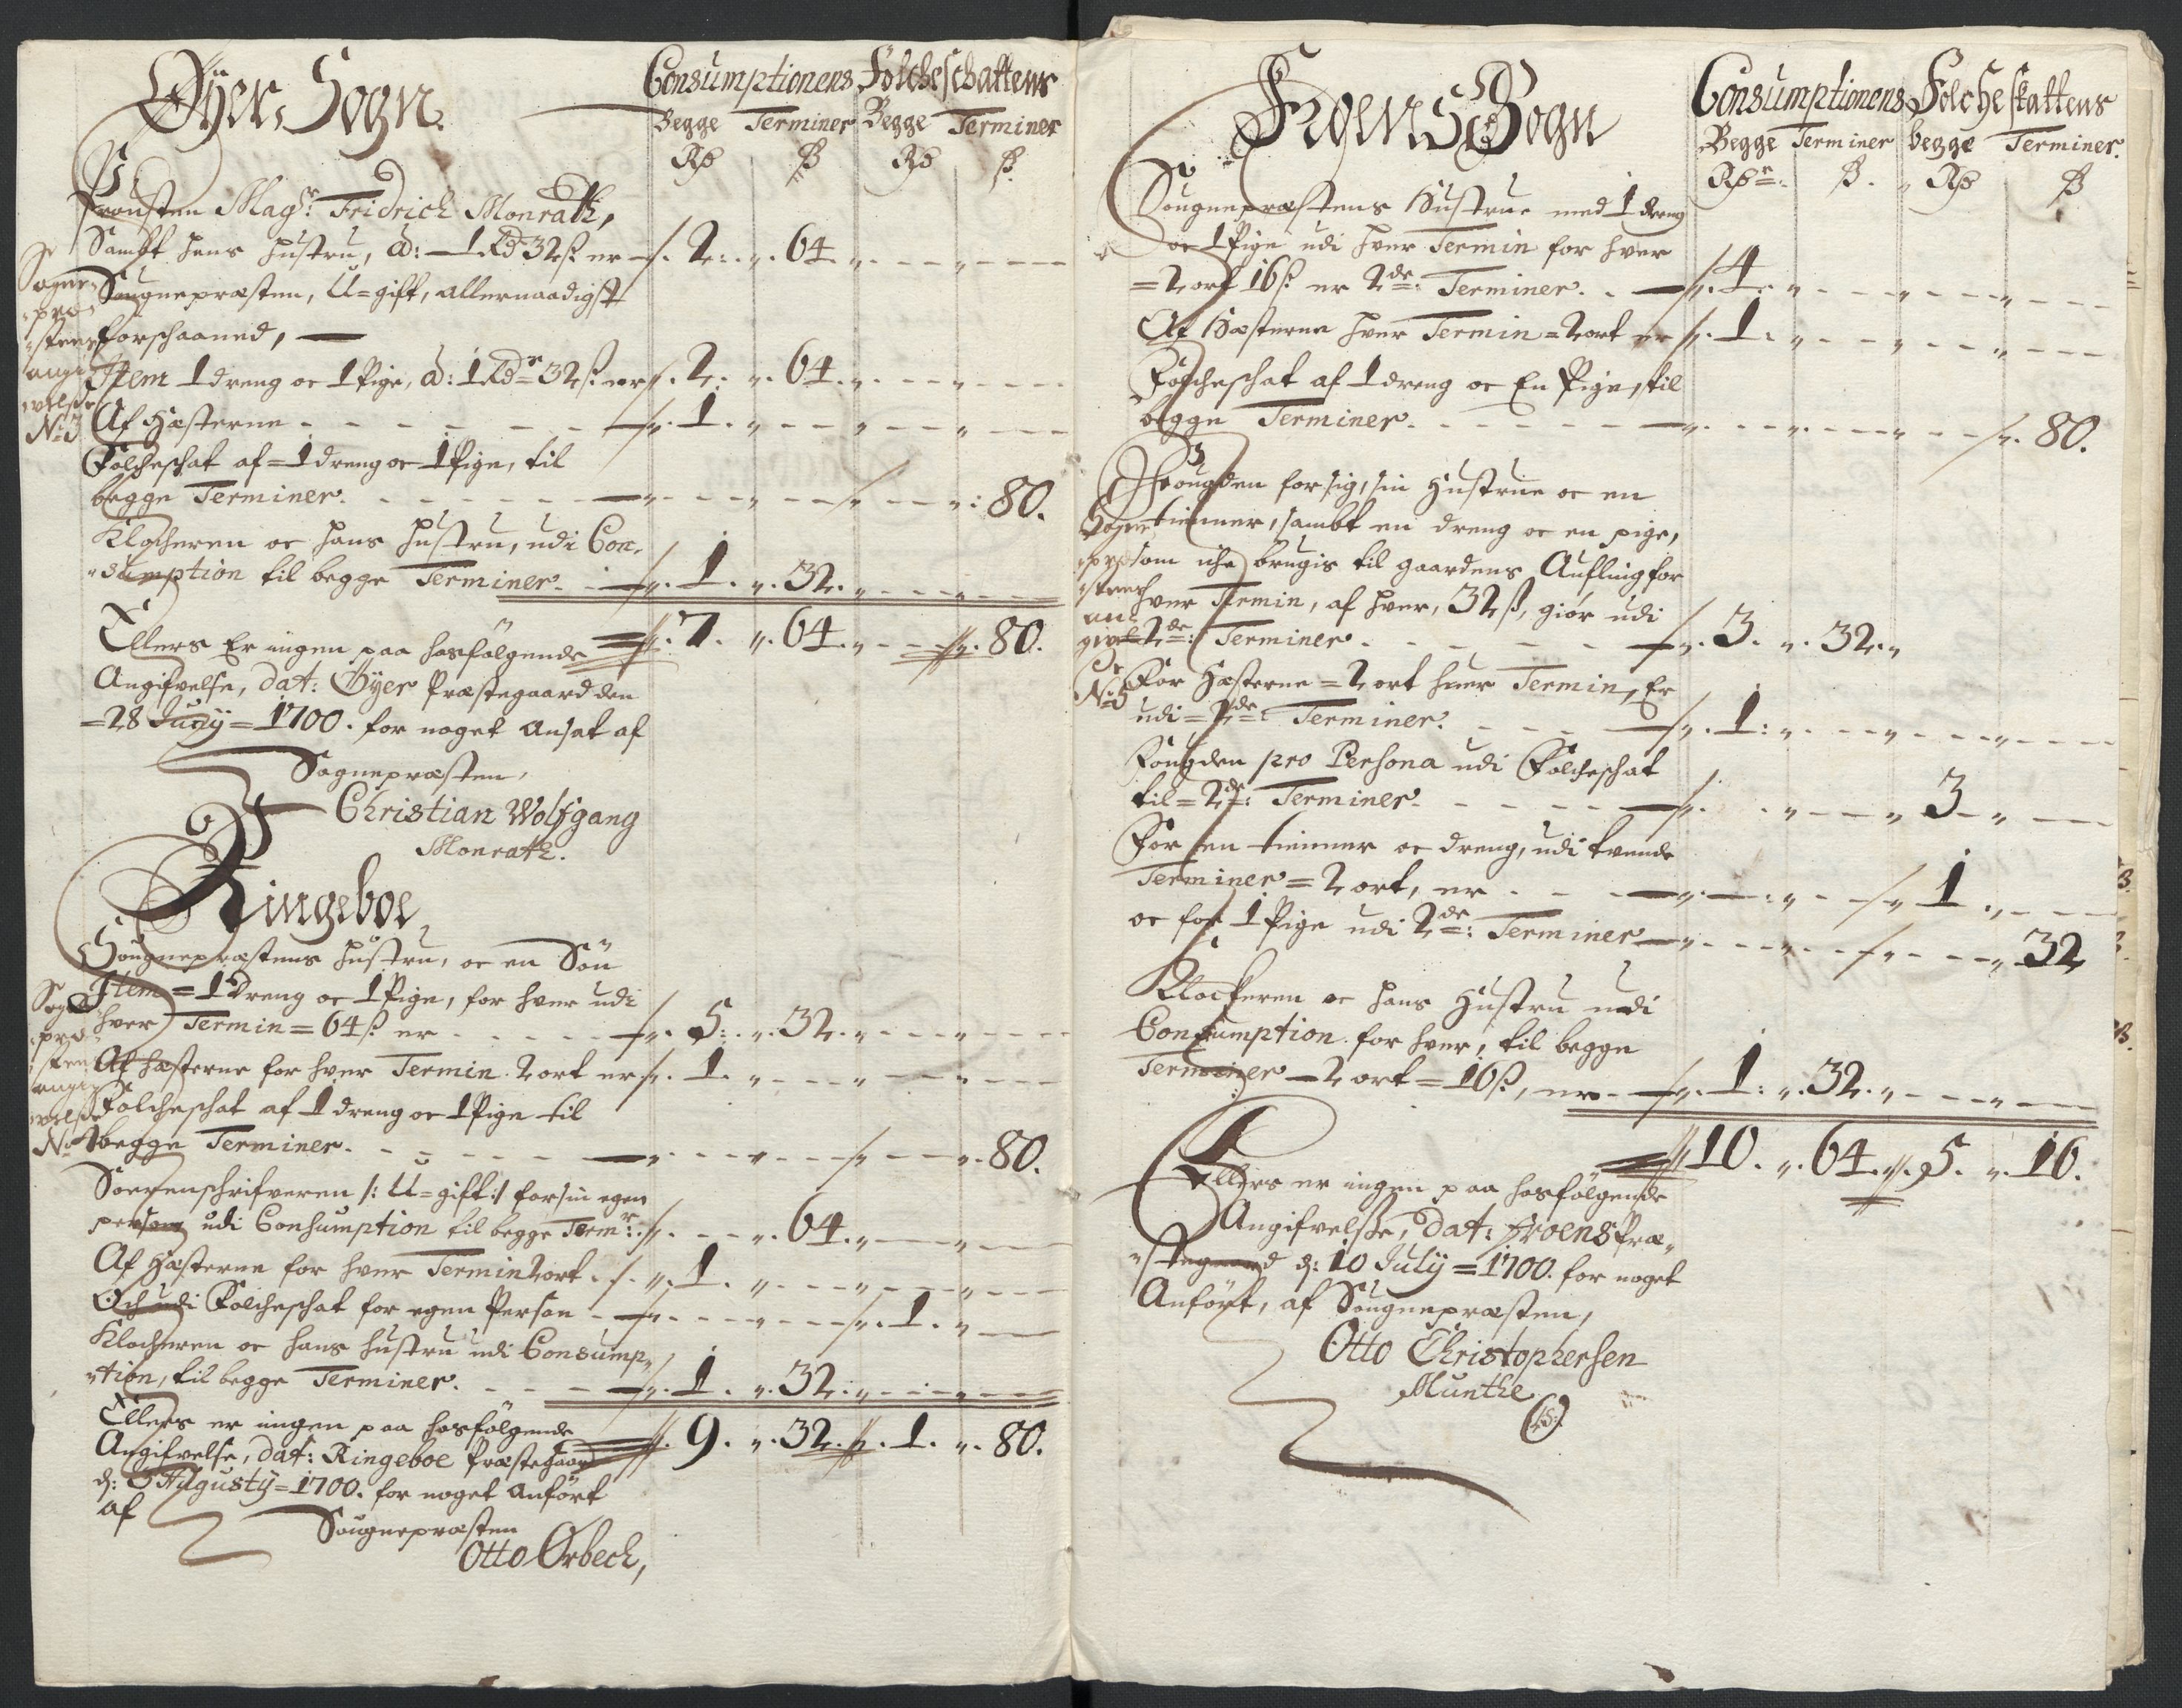 Øyer Sogn.
Consumptionens Folcheschattens
Begge Terminer Begge Terminer
Rd ß Rd ß
Prousten Magr: Fridrich Monrath,
Sambt hans hustru, â: 1 Rd 32 ß er 2. 64.
Sougnepræsten, U=gift, allernaadigst
forschaaned,
Item 1 dreng oc 1 Pige, â: 1 Rdr 32 ß er 2. 64.
Af Hæsterne 1.
Folcheschat af 1 dreng oc 1 Pige, til
begge Terminer. 80.
Klocheren oc hans hustru, udi Con-
sumption til begge Terminer. 1. 32.
7. 64. 80.
Sogne
præ
stens
angi
velsse
No 3
Ellers Er ingen paa hosfølgende
Angifvelse, dat: Øyer Præstegaard den
28 Juny 1700. for noget Ansat af
Sognepræsten,
Christian Wolfgang
Monrath.
Ringeboe
Sougnepræstens hustru, oc en Søn
Item 1 Dreng oc 1 Pige, for hver udi
hver Termin 64 ß er 5. 32.
Af hæsterne for hver Termin 2 ort er 1.
Folcheschat af 1 dreng oc 1 Pige til
begge Terminer. 80.
Sogne
præ
stens
angif
velsse
No 4
Soerenschrifveren /: U=gift :/ for sin egen
person udi Consumption til begge Termr: 64.
Af Hæsterne for hver Termin 2 ort 1.
Och udi Folcheschat for egen Person 1.
Klocheren oc hans hustru udi Consump-
tion, til begge Terminer. 1. 32.
9. 32. 1. 80.
Ellers er ingen paa hosfølgende
Angifvelse, dat: Ringeboe Præstegaard
d: 3 Augusty 1700. for noget Anført
af
Sougnepræsten
Otto Ørbech,
Froens Sogn
Consumptionens Folcheskattens
Begge Terminer begge Terminer.
Rdr ß. Rd ß
Sougnepræstens Hustrue med 1 dreng
oc 1 Pige udi hver Termin for hver
2 ort 16 ß er 2de: Terminer. 4.
Af Hæsterne hver Termin 2 ort er 1.
Folcheschat af 1 dreng oc En Pige, til
begge Terminer. 80.
Fougden for sig, sin Hustrue oc en
tienner, sambt en dreng oc en pige,
som iche brugis til gaardens Aufling for
hver Termin, af hver, 32 ß, giør udi
2de: Terminer. 3. 32.
Sogne
præ
stens
an
givel
se
No 5
For Hæsterne 2 ort huer Termin, Er
udi 2de: Terminer. 1.
Fougden pro Persona udi Folcheschat
til 2de: Terminer. 3
For en tienner oc dreng, udi tvende
Terminer 2 ort, er 1.
oc for 1 Pige udi 2de: Terminer 32
Klockeren oc hans Hustru udi
Consumption for hver, til begge
Terminer 2 ort 16 ß, er 1. 32.
10. 64. 5. 16.
Ellers er ingen paa hosfølgende
Angifvelsse, dat: Froens Præ-
stegaard d: 10 July 1700. for noget
Anført, af Sougnepræsten,
Otto Christophersen
Munthe
(LS:)